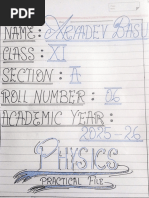 NAME: JOYADEV BASU
CLASS: XI
SECTION: A
ROLL NUMBER: 06
ACADEMIC YEAR:
2025-26
PHYSICS
PRACTICAL FILE